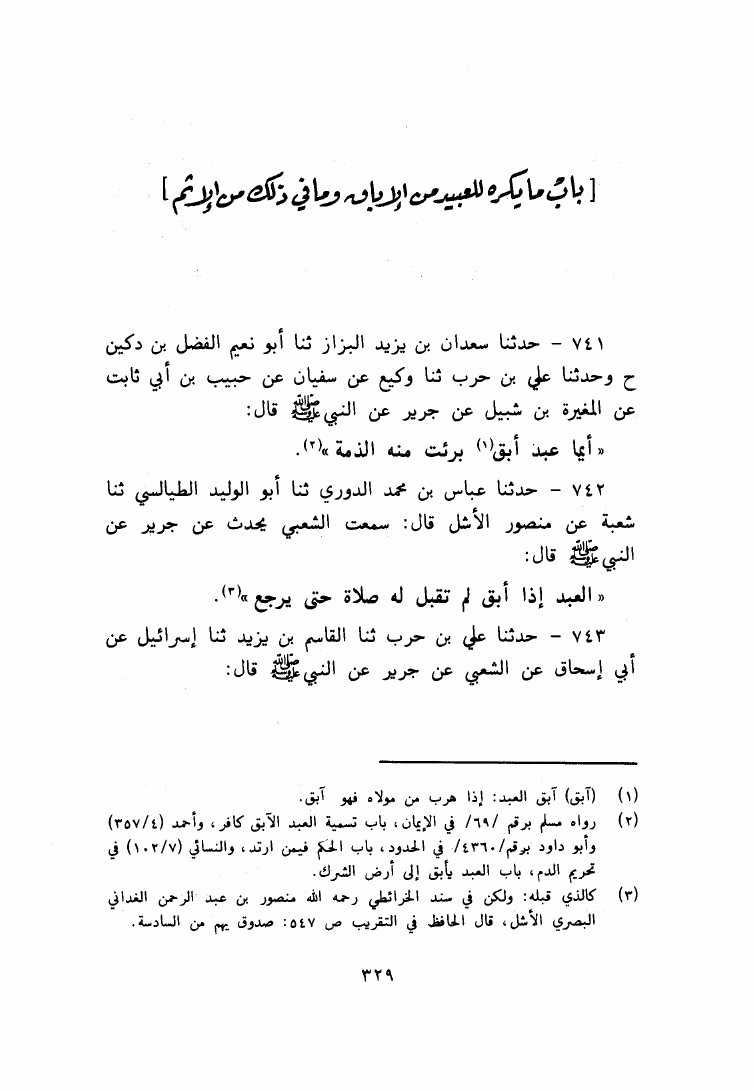 [ باب ما يكره للعبيد من الإباق وما في ذلك من الإثم ]
٧٤١ – حدثنا سعدان بن يزيد البزاز ثنا أبو نعيم الفضل بن دكين
ح وحدثنا علي بن حرب ثنا وكيع عن سفيان عن حبيب بن أبي ثابت
عن المغيرة بن شبيل عن جرير عن النبي ﷺ قال:
« أيما عبد أبق(١) برئت منه الذمة »(٢).
٧٤٢ – حدثنا عباس بن محمد الدوري ثنا أبو الوليد الطيالسي ثنا
شعبة عن منصور الأشل قال: سمعت الشعبي يحدث عن جرير عن
النبي ﷺ قال:
« العبد إذا أبق لم تقبل له صلاة حتى يرجع »(٣).
٧٤٣ – حدثنا علي بن حرب ثنا القاسم بن يزيد ثنا إسرائيل عن
أبي إسحاق عن الشعبي عن جرير عن النبي ﷺ قال:
(١) (آبق) آبق العبد: إذا هرب من مولاه فهو آبق.
(٢) رواه مسلم برقم /٦٩/ في الإيمان، باب تسمية العبد الآبق كافر، وأحمد (٣٥٧/٤)
وأبو داود برقم/٤٣٦٠/ في الحدود، باب الحكم فيمن ارتد، والنسائي (١٠٢/٧) في
تحريم الدم، باب العبد يأبق إلى أرض الشرك.
(٣) كالذي قبله: ولكن في سند الخرائطي رحمه الله منصور بن عبد الرحمن الغداني
البصري الأشل، قال الحافظ في التقريب ص ٥٤٧: صدوق يهم من السادسة.
٣٢٩